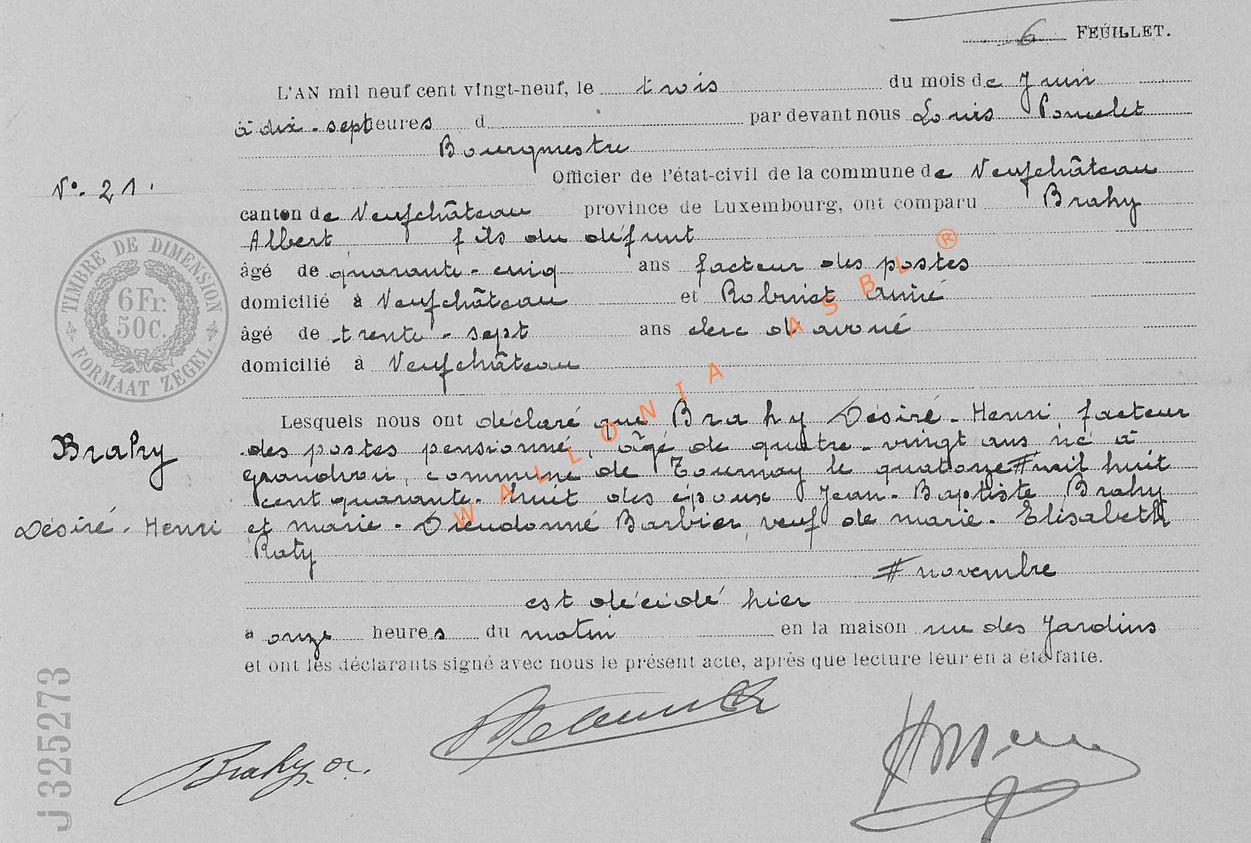 6 FEUILLET.
L'AN mil neuf cent vingt-neuf, le trois du mois de Juin
à dix-sept heures d par devant nous Louis
Bourgmestre
Officier de l'état-civil de la commune de Neufchâteau
N°. 21.
canton de Neufchâteau province de Luxembourg, ont comparu Brahy
Albert fils du défunt
âgé de quarante-cinq ans facteur des postes
domicilié à Neufchâteau et
âgé de trente-sept ans clerc d'avoué
domicilié à Neufchâteau
TIMBRE DE DIMENSION
6Fr.
50c.
FORMAAT ZEGEL
Lesquels nous ont déclaré que Brahy Désiré-Henri facteur
Brahy
Désiré-Henri
des postes pensionné, âgé de quatre-vingt ans né à
grandvoir, commune de Tournay le quatorze # mil huit
cent quarante-huit des époux Jean-Baptiste Brahy
et marie-Dieudonné Barbier, veuf de marie-Elisabeth
Raty
# novembre
est décédé hier
à onze heures du matin en la maison rue des Jardins
et ont les déclarants signé avec nous le présent acte, après que lecture leur en a été faite.
Brahy a.
J325273
WALLONIA ASBL ®